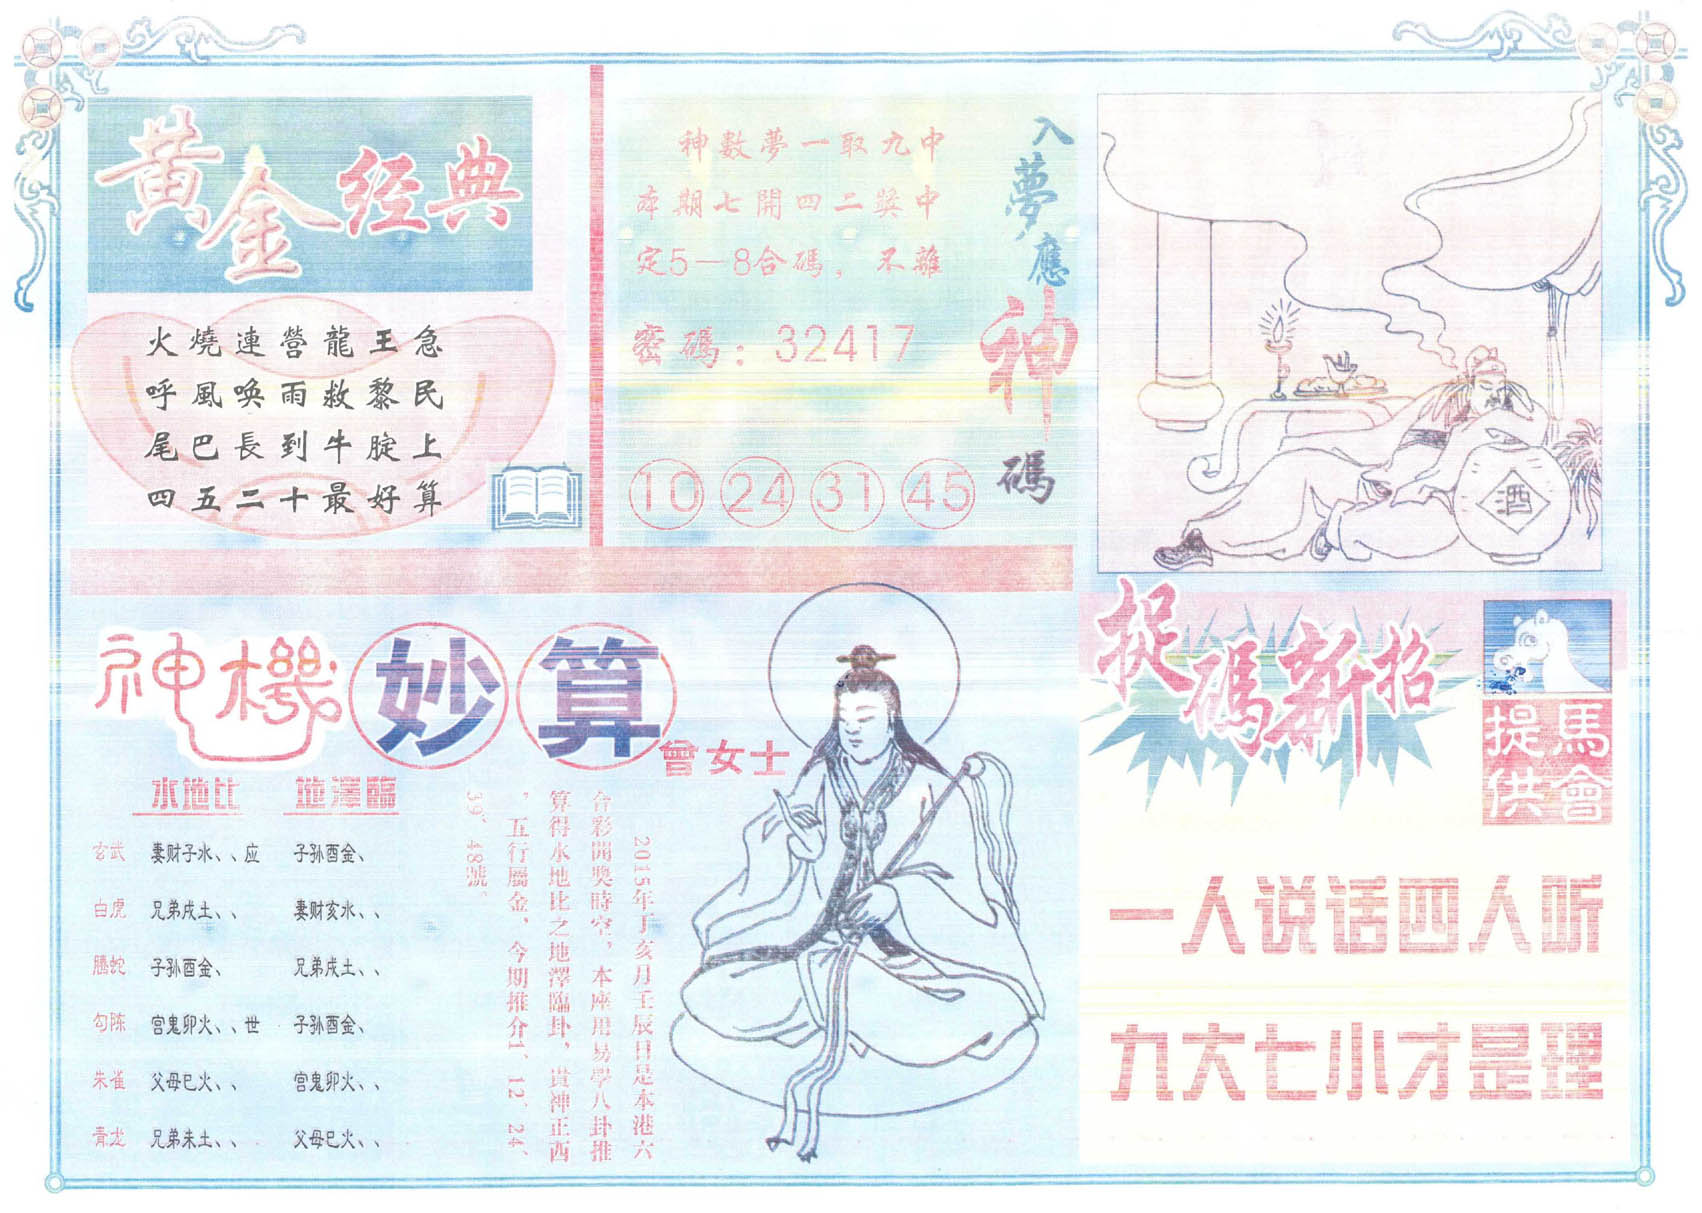 黃金经典
火燒連營龍王急
呼風喚雨救黎民
尾巴長到牛腚上
四五二十最好算
入夢應神碼
神數夢一取九中
本期七開四二獎中
定5－8合碼，不離
密碼：32417
10 24 31 45
酒
神機妙算
曾女士
水地比 地澤臨
玄武 妻财子水、、应 子孙酉金、
白虎 兄弟戌土、、 妻财亥水、、
騰蛇 子孙酉金、 兄弟戌土、、
勾陈 官鬼卯火、、世 子孙酉金、
朱雀 父母巳火、、 官鬼卯火、、
青龙 兄弟未土、、 父母巳火、、
2015年丁亥月壬辰日是本港六
合彩開獎時空，本座用易學八卦推
算得水地比之地澤臨卦，貴神正酉
，五行屬金，今期推介1、12、24、
39、48號。
捉碼新招
馬會提供
一人说话四人听
九大七小才是理